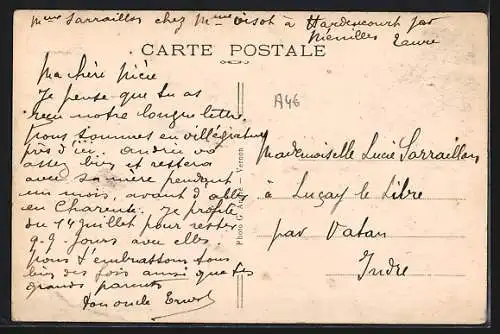 Mme Sarrailler chez Mme Visot à Hardencourt par
Ménilles Eure
CARTE POSTALE
A46
Ma chère Nièce
Je pense que tu as
reçu notre longue lettre.
Nous sommes en villégiature
près d'ici. Andrée va
assez bien et restera
avec sa mère pendant
un mois, avant d'aller
en Charente. Je profite
du 14 Juillet pour rester
q.q. jours avec elles.
Nous t'embrassons tous
bien des fois ainsi que tes
grands parents
Ton oncle Ernest
Photo G. — Vernon
Mademoiselle Lucie Sarrailler
à Luçay le Libre
par Vatan
Indre